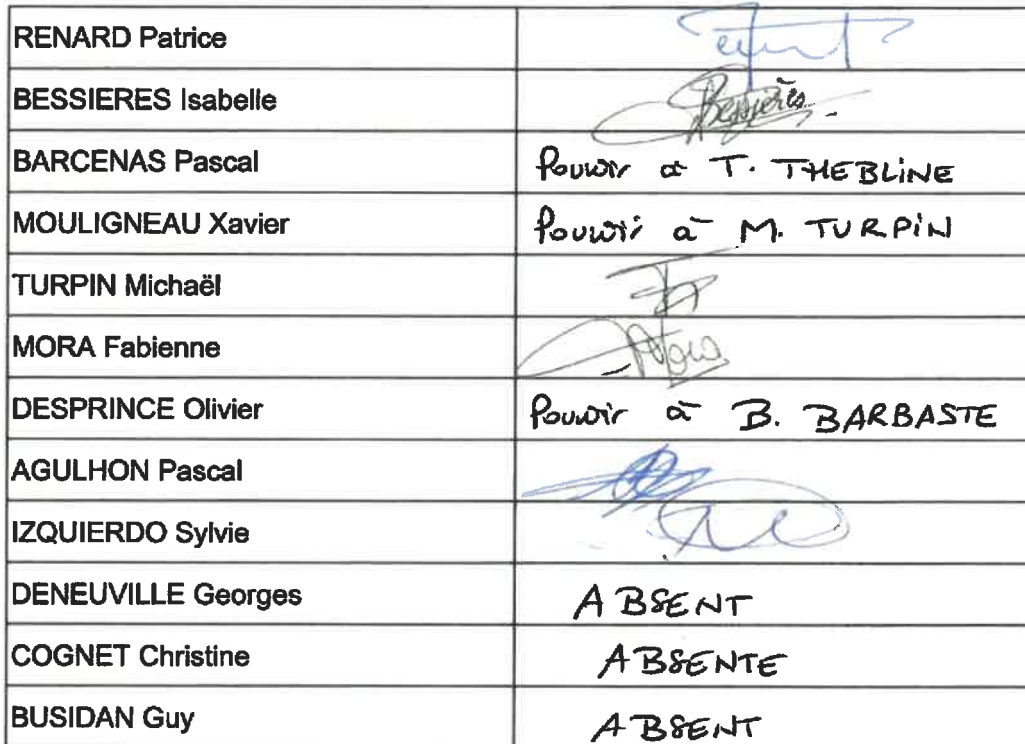 RENARD Patrice
BESSIERES Isabelle Bessières
BARCENAS Pascal Pouvoir à T. THEBLINE
MOULIGNEAU Xavier Pouvoir à M. TURPIN
TURPIN Michaël
MORA Fabienne Mora
DESPRINCE Olivier Pouvoir à B. BARBASTE
AGULHON Pascal
IZQUIERDO Sylvie
DENEUVILLE Georges ABSENT
COGNET Christine ABSENTE
BUSIDAN Guy ABSENT